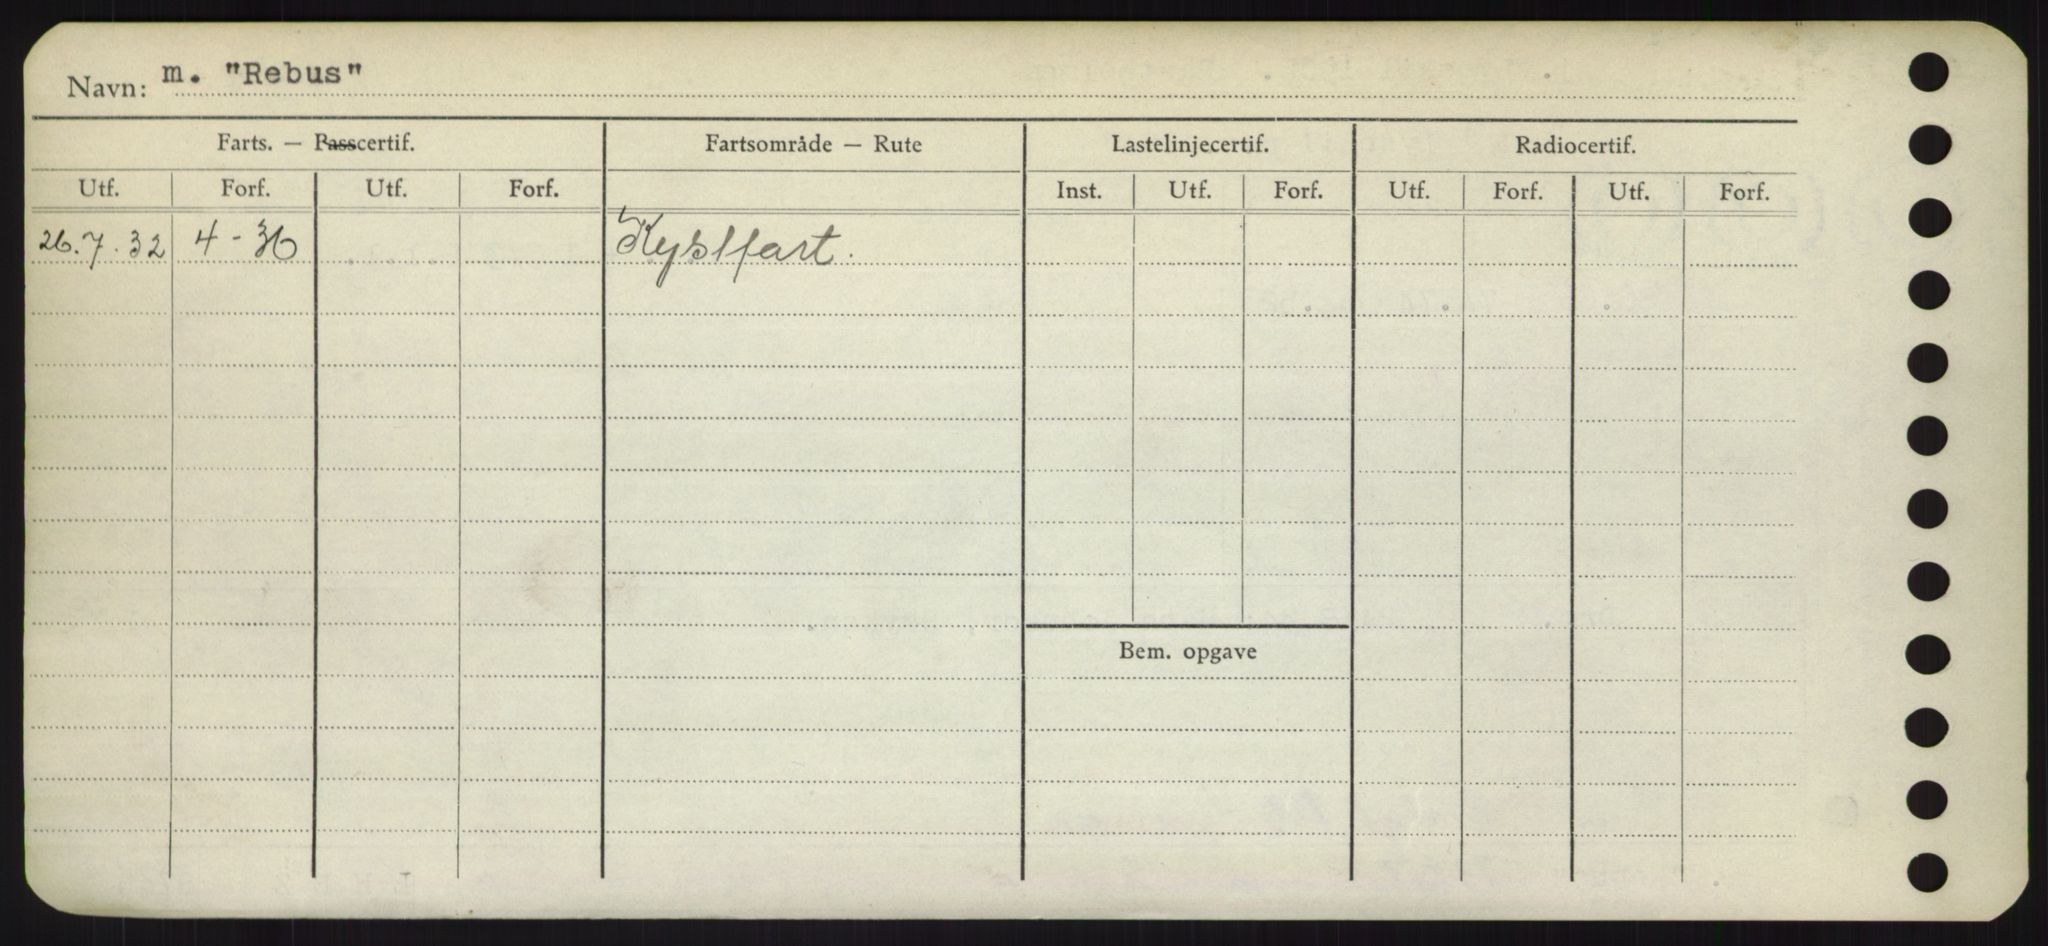 Navn: m. "Rebus"
Farts. — Passcertif. Fartsområde — Rute Lastelinjecertif. Radiocertif.
Utf. Forf. Utf. Forf. Inst. Utf. Forf. Utf. Forf. Utf. Forf.
26.7.32 4-36 Kystfart.
Bem. opgave